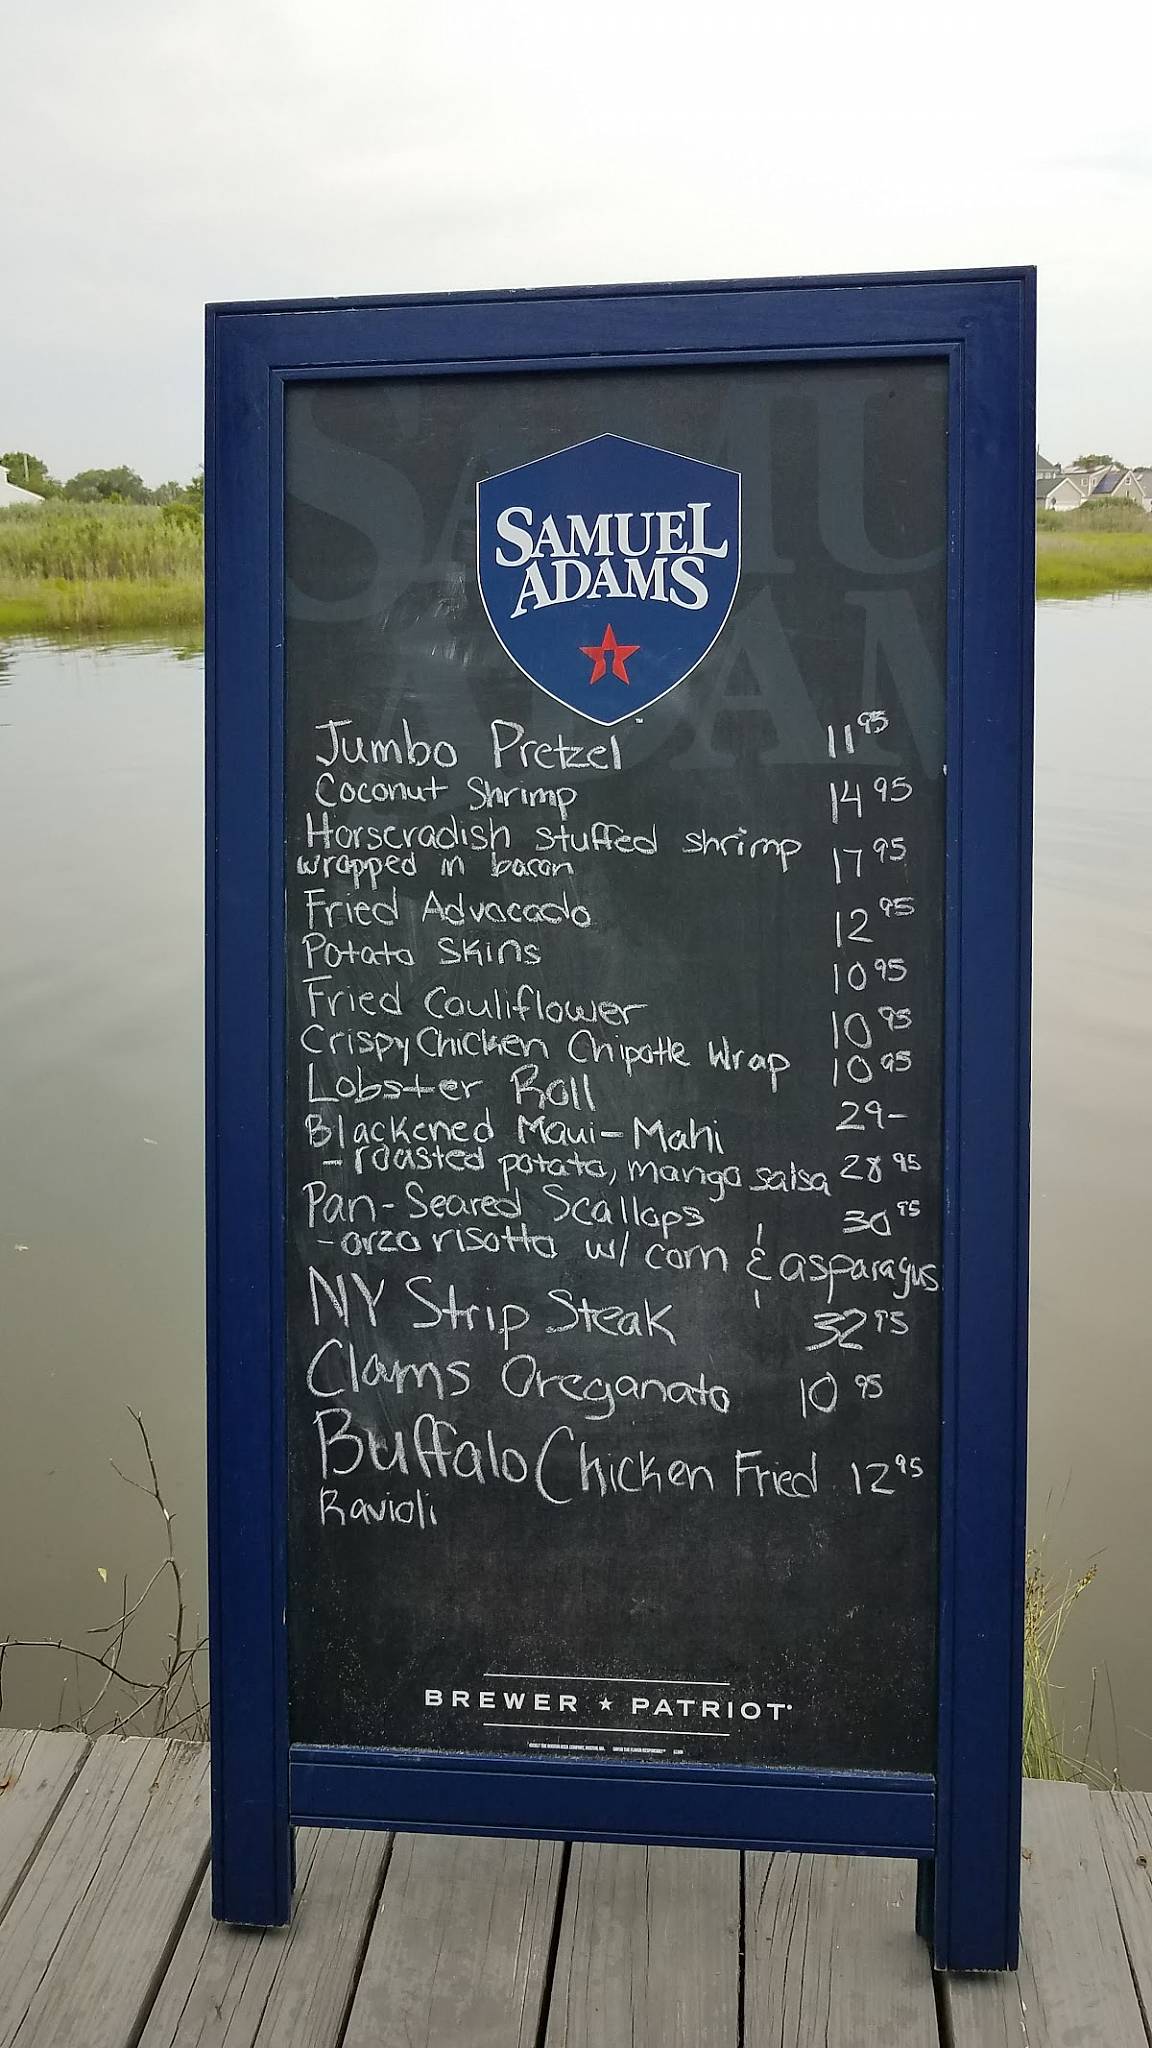 SAMUEL
ADAMS
Jumbo Pretzel 11 95
Coconut Shrimp 14 95
Horseradish stuffed shrimp
wrapped in bacon 17 95
Fried Advocado 12 95
Potato Skins 10 95
Fried Cauliflower 10 95
Crispy Chicken Chipotle Wrap 10 95
Lobster Roll 29-
Blackened Maui-Mahi
- roasted potato, mango salsa 28 95
Pan-Seared Scallops 30 95
- orzo risotto w/ corn & asparagus
NY Strip Steak 32 95
Clams Oreganato 10 95
Buffalo Chicken Fried 12 95
Ravioli
BREWER ★ PATRIOT